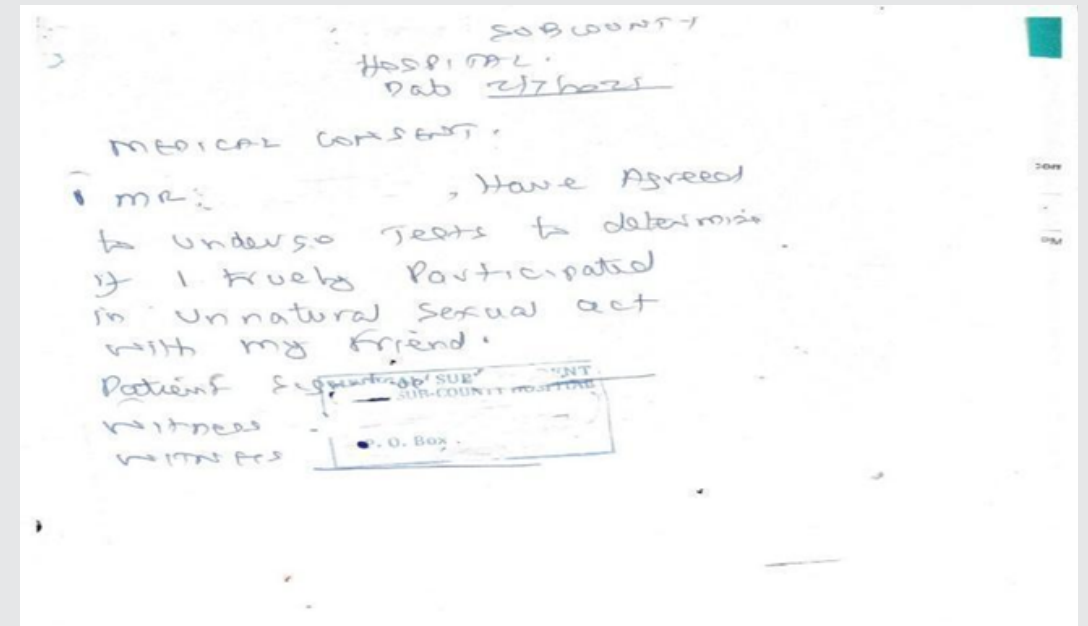 SUBCOUNTY
HOSPITAL.
Dab 2/7/2025
MEDICAL CONSENT.
I MR: , Have Agreed
to undergo Tests to determine
if I truely Participated
in unnatural sexual act
with my friend.
Patient
SUB-COUNTY HOSPITAL
Witness
P. O. Box
WITNESS